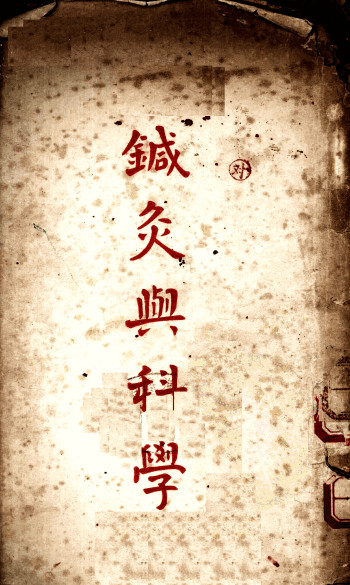 鍼灸與科學
对